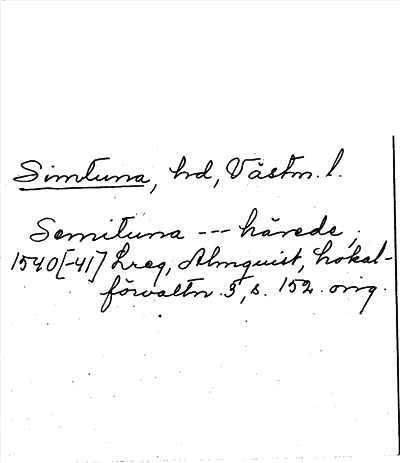 Simtuna, hd, Västm. l.
Semituna --- härede,
1540[-41] Lreg, Almquist, Lokal-
förvaltn. 3, s. 152. orig.